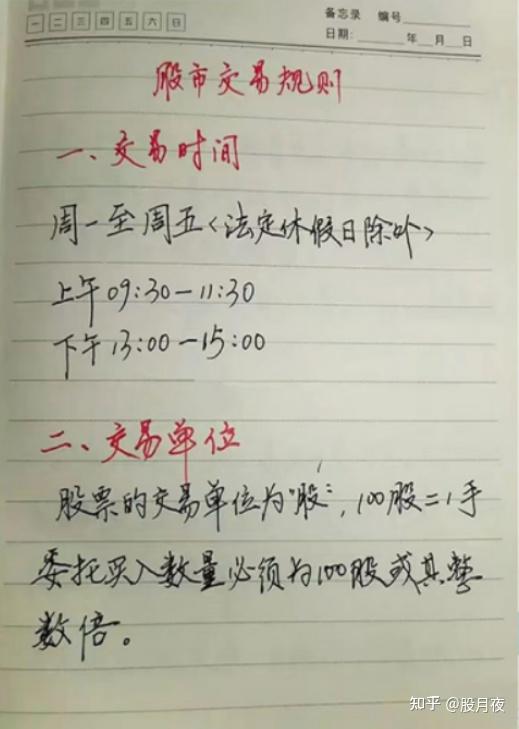 一 二 三 四 五 六 日
备忘录 编号
日期: 年 月 日
股市交易规则
一、交易时间
周一至周五<法定休假日除外>
上午09:30-11:30
下午13:00-15:00
二、交易单位
股票的交易单位为"股",100股=1手
委托买入数量必须为100股或其整
数倍。
知乎 @股月夜